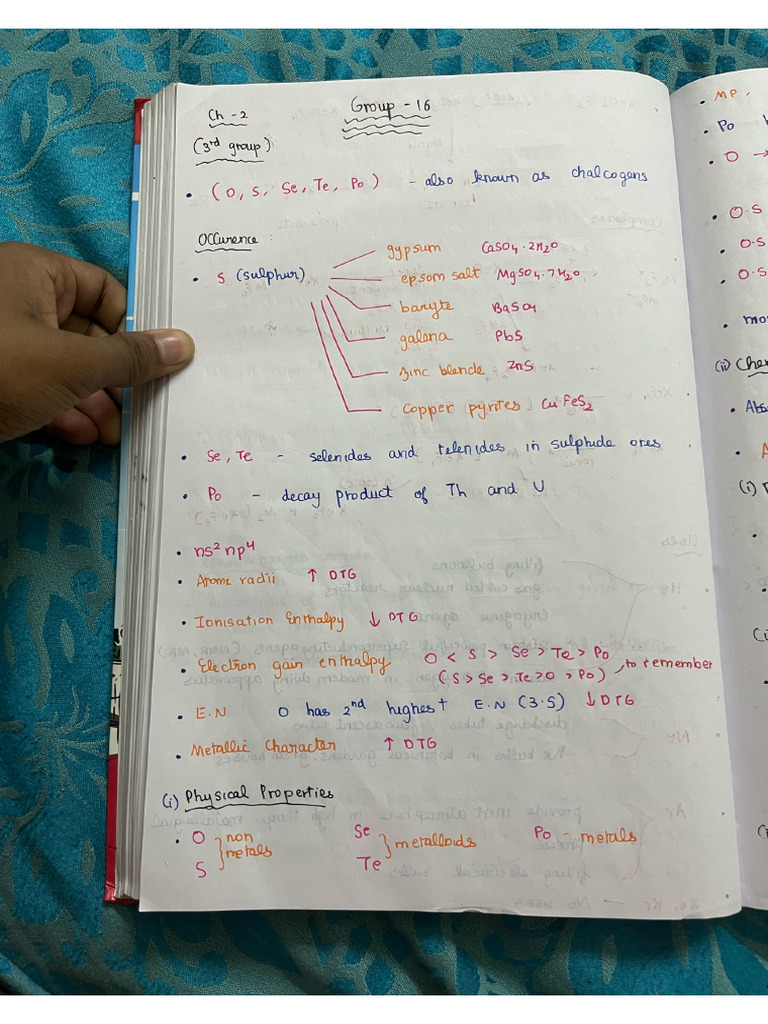 Ch - 2
Group - 16
(3rd group)
• (O, S, Se, Te, Po) - also known as chalcogens
Occurence :
• S (sulphur)
gypsum CaSO4·2H2O
epsom salt MgSO4·7H2O
baryte BaSO4
galena PbS
zinc blende ZnS
copper pyrites CuFeS2
• Se, Te - selenides and telenides in sulphide ores
• Po - decay product of Th and U
• ns² np⁴
• Atomic radii ↑ DTG
• Ionisation Enthalpy ↓ DTG
• Electron gain enthalpy O < S > Se > Te > Po
(S > Se > Te > O > Po) to remember
• E.N O has 2nd highest E.N (3.5) ↓ DTG
• Metallic Character ↑ DTG
(i) Physical Properties
• O } non metals Se } metalloids Po - metals
S Te
• MP.
• Po
• O →
• O.S
• O.S
• O.S
(ii) Che
• Abs
(i)